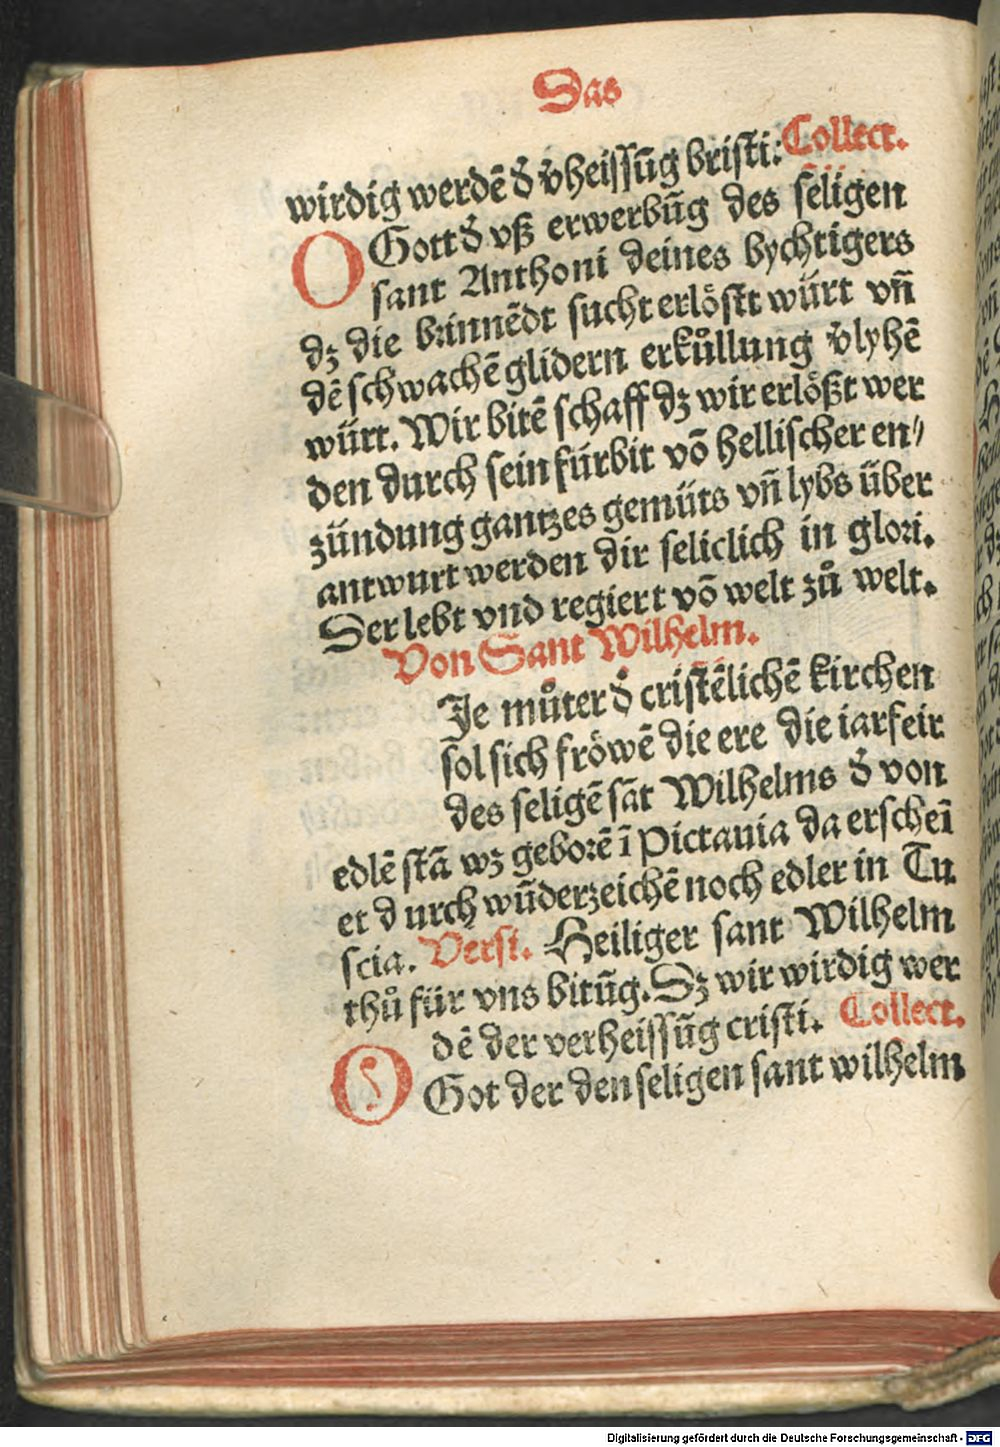 Das
wirdig werdē d̄ v̄heissūg bristi: Collect.
O Gott d̄ vß erwerbūg des seligen
sant Anthoni deines bychtigers
dz die brinnēdt sucht erlöstt würt vñ
dē schwachē glidern erkůllung v̄lyhē
würt. Wir bitē schaff dz wir erlößt wer
den durch sein fürbit võ hellischer en⸗
zündung gantzes gemüts vñ lybs über
antwurt werden dir seliclich in glori.
Der lebt vnd regiert võ welt zů welt.
Von Sant Wilhelm.
Je můter d̄ cristēlichē kirchen
sol sich fröwē die ere die iarfeir
des seligē sāt Wilhelms d̄ von
edlē stā wz geborē ī Pictauia da erscheī
et d urch wūderzeichē noch edler in Tu
scia. Versi. Heiliger sant Wilhelm
thů für vns bitūg. Dz wir wirdig wer
dē der verheissūg cristi. Collect.
O Got der den seligen sant wilhelm
Digitalisierung gefördert durch die Deutsche Forschungsgemeinschaft - DFG